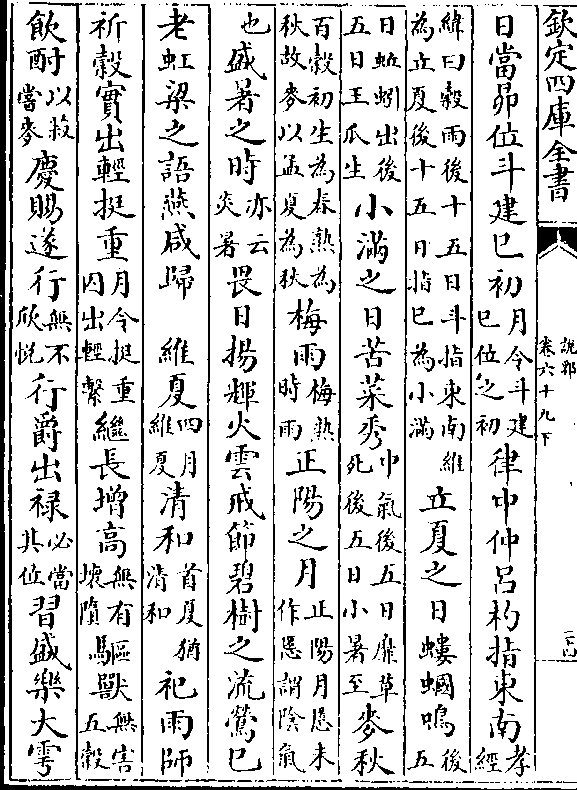 欽定四庫全書
説郛
卷六十九下
日當昴位斗建巳初月令斗建巳位之初律中仲呂杓指東南孝經
緯曰穀雨後十五日斗指東南維為立夏後十五日指巳為小滿立夏之日螻蟈鳴後五
日蚯蚓出後五日王瓜生小滿之日苦菜秀中氣後五日靡草死後五日小暑至麥秋
百穀初生為春熟為秋故麥以孟夏為秋梅雨梅熟時雨正陽之月正陽月慝未作慝謂陰氣
也盛暑之時亦云炎暑畏日揚輝火雲戒節碧樹之流鶯已
老虹梁之語燕咸歸 維夏四月維夏清和首夏猶清和祀雨師
祈穀實出輕挺重月令挺重囚出輕繫繼長增高無有壞隳驅獸無害五穀
飲酎以救當麥慶賜遂行無不欣悅行爵出祿必當其位習盛樂大雩